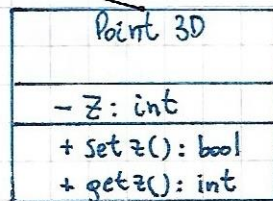 Point 3D
- z: int
+ setz(): bool
+ getz(): int